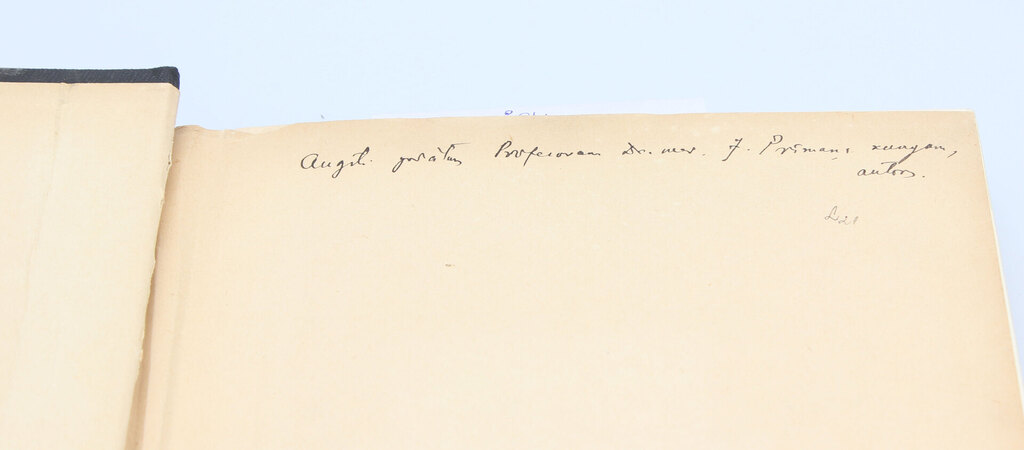 Augst. godātam Profesoram Dr. med. J. Prīmaņa kungam,
autors.
L 21